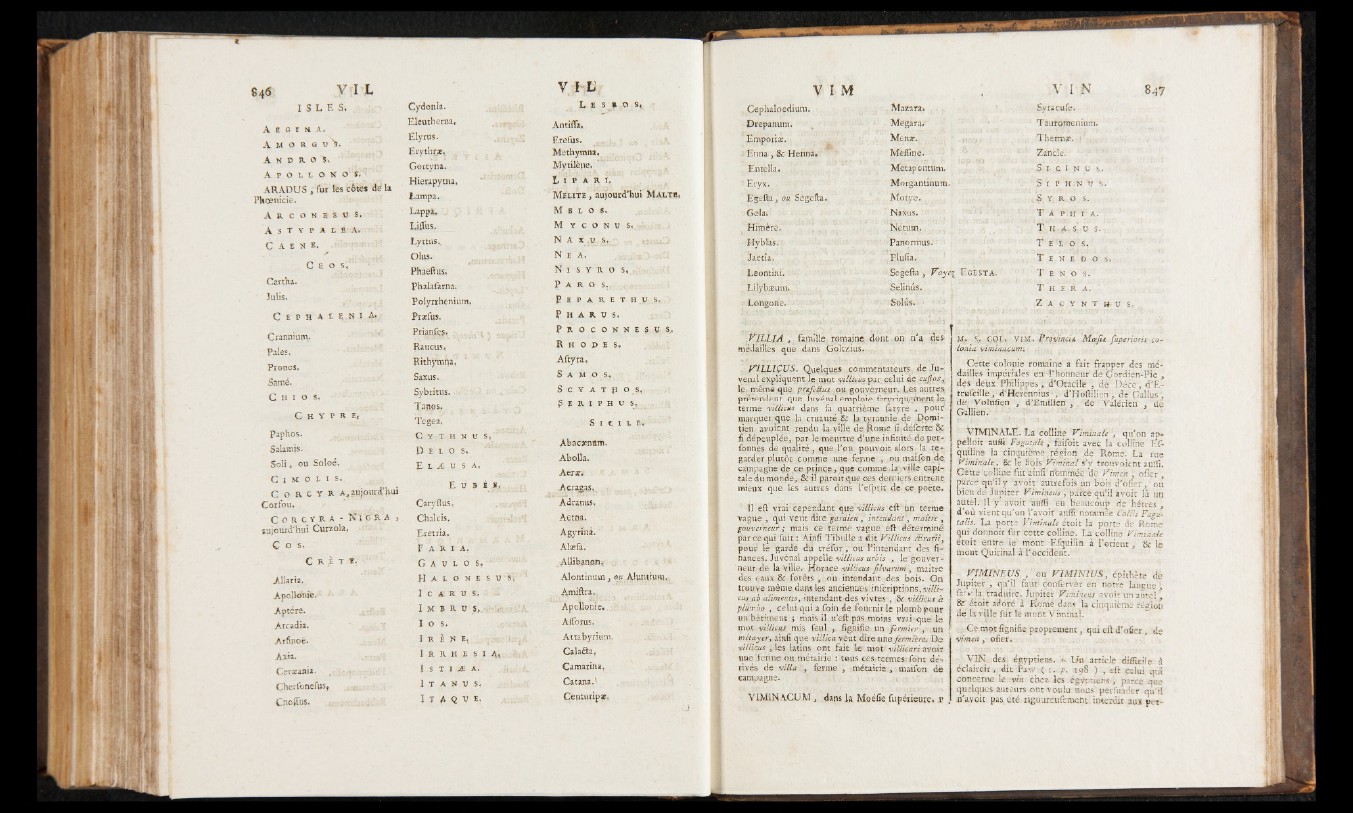 846
VIL
ISLES.
ÆGINA.
AMORGUS.
ANDROS.
APOLLONOS.
ARADUS, ſur les côtes de la
Phœnicie.
ARCONESUS.
ASTYPALEA.
CAENE.
CEOS.
Cartha.
Julis.
CEPHALENIA.
Crannium.
Pales.
Pronos.
Samé.
CHIOS.
CHYPRE,
Paphos.
Salamis.
Soli, ou Soloé.
CIMOLIS.
CORCYRA, aujourd'hui
Corfou.
CORCYRA-NIGRA,
aujourd'hui Curzola.
COS.
CRÈTE.
Allaria.
Apollonie.
Aptére.
Arcadia.
Arſinoé.
Axia.
Ceræania.
Cherſoneſus,
Cnoſſus.
Cydonia.
Eleutherna.
Elyrus.
Erythræ.
Gortyna.
Hierapytna,
Lampa.
Lappa.
Liſſus.
Lyttus.
Olus.
Phaeſtus.
Phalaſarna.
Polyrrhenium.
Præſus.
Prianſes.
Raucus.
Rithymna,
Saxus.
Sybritus.
Tanos.
Tegea.
CYTHNUS,
DELOS.
ELÆUSA,
EUBÉE,
Caryſtus.
Chalcis.
Eretria.
FARIA.
GAULOS,
HALONESUS,
ICARUS.
IMBRUS,
IOS.
IRÈNE,
IRRHESIA,
ISTIÆA.
ITANUS.
ITAQUE.
VIL
LESBOS,
Antiſſa,
Ereſus.
Methymna.
Mytilène.
LIPARI.
MELITE, aujourd'hui MALTE,
MELOS.
MYCONUS,
NAXUS.
NEA.
NISYROS,
PAROS.
PEPARETHUS.
PHARUS.
PROCONNESUS,
RHODES,
Aſtyra,
SAMOS,
SCYATHOS,
SERIPHUS,
SICILE.
Abacænum.
Abolla.
Aeræ.
Acragas.
Adranus.
Aetna.
Agyrina.
Alæſa.
Allibanon.
Alontinum, ou Aluntium.
Amiſtra.
Apollonie.
Aſſorus.
Attabyrium.
Calaĉta,
Camarina,
Catana.
Centuripæ.
VIM
Cephaloedium.
Drepanum.
Emporiæ.
Enna, & Henna.
Entella.
Eryx.
Egeſta, ou Segeſta.
Gela.
Himère.
Hyblas.
Jaetia.
Leontini.
Lilybæum.
Longone.
Mazara.
Megara.
Menæ.
Meſſine.
Metapontum.
Morgantinum.
Motye.
Naxus.
Netum.
Panormus.
Pluſia.
Segeſta, Voyez EGESTA.
Selinús.
Solús.
VIN
847
Syracuſe.
Tauromenium.
Thermæ.
Zancle.
SICINUS.
SIPHNUS.
SYROS.
TAPHIA.
THASUS.
TELOS.
TENEDOS.
TENOS.
THERA.
ZACYNTHUS.
VILLIA, famille romaine dont on n'a des
médailles que dans Goltzius.
VILLICUS. Quelques commentateurs de Ju-
venal expliquent le mot villicus par celui de cuſtos,
le même que præfectus ou gouverneur. Les autres
prétendent que Juvénal emploie ſatyriquement le
terme villicus dans ſa quatrième ſatyre, pour
marquer que la cruauté & la tyrannie de Domi-
tien avoient rendu la ville de Rome ſi déſerte &
ſi dépeuplée, par le meurtre d'une infinité de per-
ſonnes de qualité, que l'on pouvoit alors la re-
garder plutôt comme une ferme, ou maiſon de
campagne de ce prince, que comme la ville capi-
tale du monde, & il paroît que ces derniers entrent
mieux que les autres dans l'eſprit de ce poëte.
Il eſt vrai cependant que villicus eſt un terme
vague, qui veut dire gardien, intendant, maître,
gouverneur; mais ce terme vague eſt déterminé
par ce qui ſuit: Ainſi Tibulle a dit Villicus ærarii,
pour le garde du tréſor, ou l'intendant des fi-
nances. Juvénal appelle villicus urbis, le gouver-
neur de la ville. Horace villicus ſilvarum, maître
des eaux & forêts, ou intendant des bois. On
trouve même dans les anciennes inſcriptions, villi-
cus ab alimentis, intendant des vivres, & villicus à
plumbo, celui qui a ſoin de fournir le plomb pour
un bâtiment; mais il n'eſt pas moins vrai que le
mot villicus mis ſeul, ſignifie un fermier, un
métayer, ainſi que villica veut dire une fermière. De
villicus, les latins ont fait le mot villicari avoir
une ferme ou métairie: tous ces termes ſont dé-
rivés de villa, ferme, métairie, maiſon de
campagne.
VIMINACUM, dans la Moéſie ſupérieure. P
M. S. COL. VIM. Provinciæ Mœſiæ ſuperioris co-
lonia viminacum.
Cette colonie romaine a fait frapper des mé-
dailles impériales en l'honneur de Gordien-Pie,
des deux Philippes, d'Otacile, de Dèce, d'E-
truſcille, d'Herennius, d'Hoſtilien, de Gallus,
de Voluſien, d'Emilien, de Valérien, de
Gallien.
VIMINALE. La colline Viminale, qu'on ap-
pelloit auſſi Fagutale, faiſoit avec la colline Eſ-
quiline la cinquième région de Rome. La rue
Viminale, & le bois Viminel s'y trouvoient auſſi.
Cette colline fut ainſi nommée de Vimen, oſier,
parce qu'il y avoit autrefois un bois d'oſier, ou
bien de Jupiter Vimineus, parce qu'il avoit là un
autel. Il y avoit auſſi en beaucoup de hêtres,
d'où vient qu'on l'avoit auſſi nommée Collis Fagu-
talis. La porte Viminale étoit la porte de Rome
qui donnoit ſur cette colline. La colline Viminale
étoit entre le mont Eſquilin à l'orient, & le
mont Quirinal à l'occident.
VIMINEUS, ou VIMINIUS, épithète de
Jupiter, qu'il faut conſerver en notre langue,
ſans la traduire. Jupiter Vimineus avoit un autel,
& étoit adoré à Rome dans la cinquième région
de la ville ſur le mont Viminal.
Ce mot ſignifie proprement, qui eſt d'oſier, de
vimen, oſier.
VIN des égyptiens. « Un article difficile à
éclaircir, dit Paw (t. p. 198), eſt celui qui
concerne le vin chez les égyptiens; parce que
quelques auteurs ont voulu nous perſuader qu'il
n'avoit pas été rigoureuſement interdit aux per-